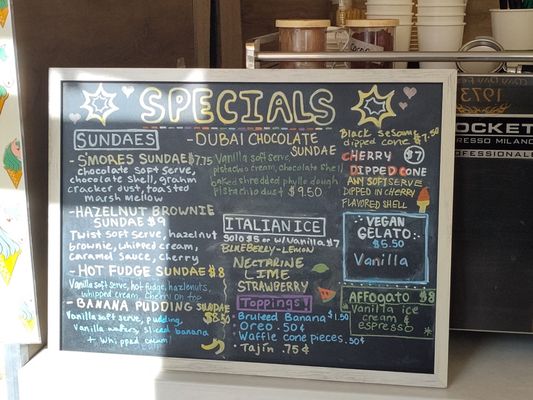 SPECIALS
SUNDAES
-S'MORES SUNDAE $7.75
chocolate soft serve,
chocolate shell, graham
cracker dust, toasted
marsh mellow
-HAZELNUT BROWNIE
SUNDAE $9
Twist soft serve, hazelnut
brownie, whipped cream,
caramel sauce, cherry
-HOT FUDGE SUNDAE $8
Vanilla soft serve, hot fudge, hazelnuts,
whipped cream, cherry on top
-BANANA PUDDING SUNDAE
$8.50
Vanilla soft serve, pudding,
Vanilla wafers, sliced banana
+ whipped cream
-DUBAI CHOCOLATE
SUNDAE
Vanilla soft serve,
pistachio cream, chocolate shell
baked shredded phyllo dough
Pistachio dust $9.50
ITALIAN ICE
Solo $5 or w/ Vanilla $7
BLUEBERRY-LEMON
NECTARINE
LIME
STRAWBERRY
Toppings!
Bruleed Banana $1.50
Oreo .50¢
Waffle cone pieces .50¢
Tajin .75¢
Black sesame $7.50
dipped cone
CHERRY $7
DIPPED CONE
ANY SOFT SERVE
DIPPED IN CHERRY
FLAVORED SHELL
VEGAN
GELATO:
$5.50
Vanilla
AFFOGATO $8
Vanilla ice
cream &
espresso
1973
OCKET
ESPRESSO MILANO
PROFESSIONALE